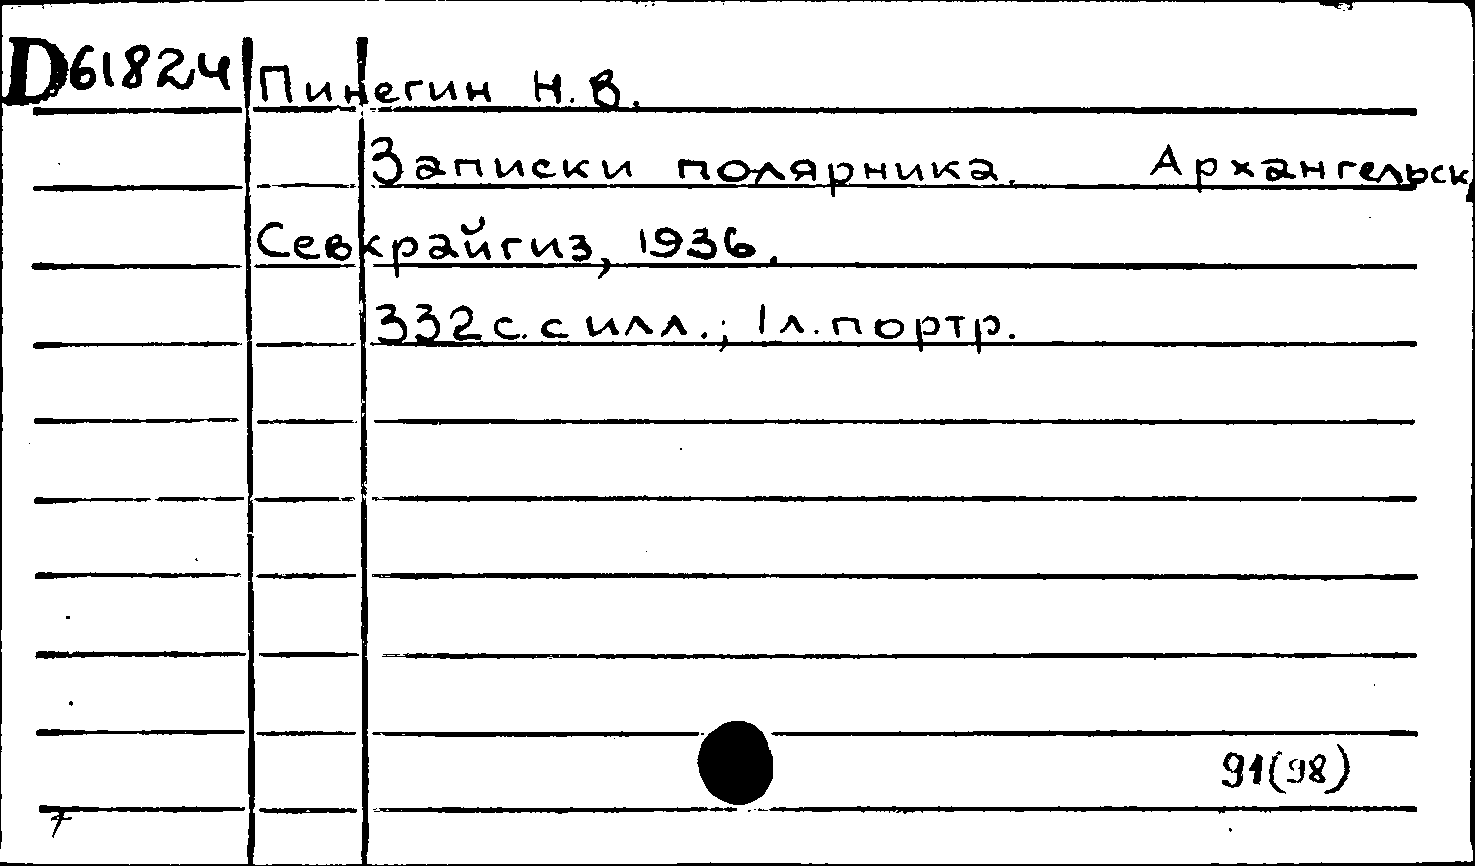 D61824 Пинегин Н. В.
Записки полярника. Архангельск,
Севкрайгиз, 1936.
332 с. с илл.; 1 л. портр.
91(98)
7